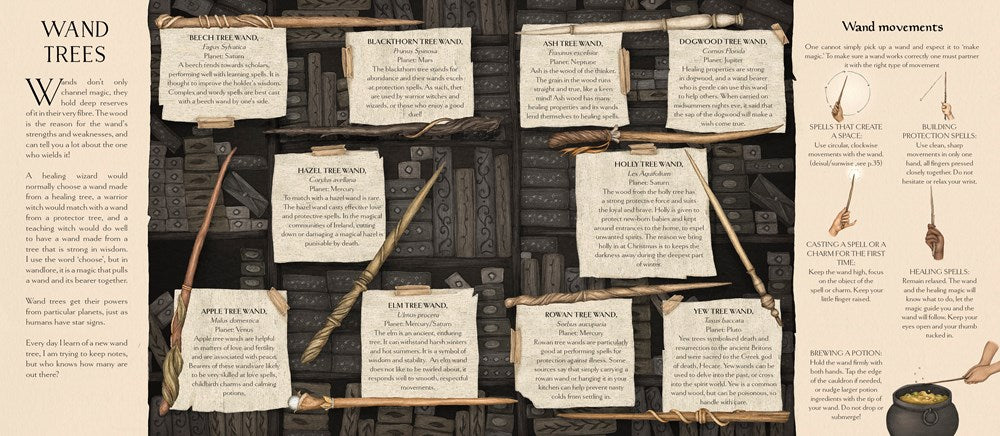 WAND
TREES
Wands don't only
channel magic, they
hold deep reserves
of it in their very fibre. The wood
is the reason for the wand's
strengths and weaknesses, and
can tell you a lot about the one
who wields it!
A healing wizard would
normally choose a wand made
from a healing tree, a warrior
witch would match with a wand
from a protector tree, and a
teaching witch would do well
to have a wand made from a
tree that is strong in wisdom.
I use the word 'choose', but in
wandlore, it is a magic that pulls
a wand and its bearer together.
Wand trees get their powers
from particular planets, just as
humans have star signs.
Every day I learn of a new wand
tree, I am trying to keep notes,
but who knows how many are
out there?
BEECH TREE WAND,
Fagus Sylvatica
Planet: Saturn
A beech tends towards scholars,
performing well with learning spells. It is
thought to improve the holder's wisdom.
Complex and wordy spells are best cast
with a beech wand by one's side.
BLACKTHORN TREE WAND,
Prunus Spinosa
Planet: Mars
The blackthorn tree stands for
abundance and their wands excels
at protection spells. As such, they
are used by warrior witches and
wizards, or those who enjoy a good
duel!
HAZEL TREE WAND,
Corylus avellana
Planet: Mercury
To match with a hazel wand is rare.
The hazel wand casts effective love
and protective spells. In the magical
communities of Ireland, cutting
down or damaging a magical hazel is
punishable by death.
APPLE TREE WAND,
Malus domestica
Planet: Venus
Apple tree wands are helpful
in matters of love and fertility
and are associated with peace.
Bearers of these wands are likely
to be very skilled at love spells,
childbirth charms and calming
potions,
ELM TREE WAND,
Ulmus procera
Planet: Mercury/Saturn
The elm is an ancient, enduring
tree. It can withstand harsh winters
and hot summers. It is a symbol of
wisdom and stability. An elm wand
does not like to be twirled about, it
responds well to smooth, respectful
movements.
ASH TREE WAND,
Fraxinus excelsior
Planet: Neptune
Ash is the wood of the thinker.
The grain in the wood runs
straight and true, like a keen
mind! Ash wood has many
healing properties and its wands
lend themselves to healing spells.
DOGWOOD TREE WAND,
Cornus Florida
Planet: Jupiter
Healing properties are strong
in dogwood, and a wand bearer
who is gentle can use this wand
to help others. When carried on
midsummers nights eve, it said that
the sap of the dogwood will make a
wish come true.
HOLLY TREE WAND,
Lex Aquifolium
Planet: Saturn
The wood from the holly tree has
a strong protective force and suits
the loyal and brave. Holly is given to
protect new-born babies and kept
around entrances to the home, to expel
unwanted spirits. The reason we bring
holly in at Christmas is to keep the
darkness away during the deepest part
of winter.
ROWAN TREE WAND,
Sorbus aucuparia
Planet: Mercury
Rowan tree wands are particularly
good at performing spells for
protection against illness. Some
sources say that simply carrying a
rowan wand or hanging it in your
kitchen can help prevent nasty
colds from settling in.
YEW TREE WAND,
Taxus baccata
Planet: Pluto
Yew trees symbolised death and
resurrection to the ancient Britons
and were sacred to the Greek god
of death, Hecate. Yew wands can be
used to delve into the past, or cross
into the spirit world. Yew is a common
wand wood, but can be poisonous, so
handle with care.
Wand movements
One cannot simply pick up a wand and expect it to 'make
magic'. To make sure a wand works correctly one must partner
it with the right type of movement
SPELLS THAT CREATE
A SPACE:
Use circular, clockwise
movements with the wand.
(deisul/sunwise , see p.35)
BUILDING
PROTECTION SPELLS:
Use clean, sharp
movements in only one
hand, all fingers pressed
closely together. Do not
hesitate or relax your wrist.
CASTING A SPELL OR A
CHARM FOR THE FIRST
TIME:
Keep the wand high, focus
on the object of the
spell or charm. Keep your
little finger raised.
HEALING SPELLS:
Remain relaxed. The wand
and the healing magic will
know what to do, let the
magic guide you and the
wand will follow. Keep your
eyes open and your thumb
tucked in.
BREWING A POTION:
Hold the wand firmly with
both hands. Tap the edge
of the cauldron if needed,
or nudge larger potion
ingredients with the tip of
your wand. Do not drop or
submerge!